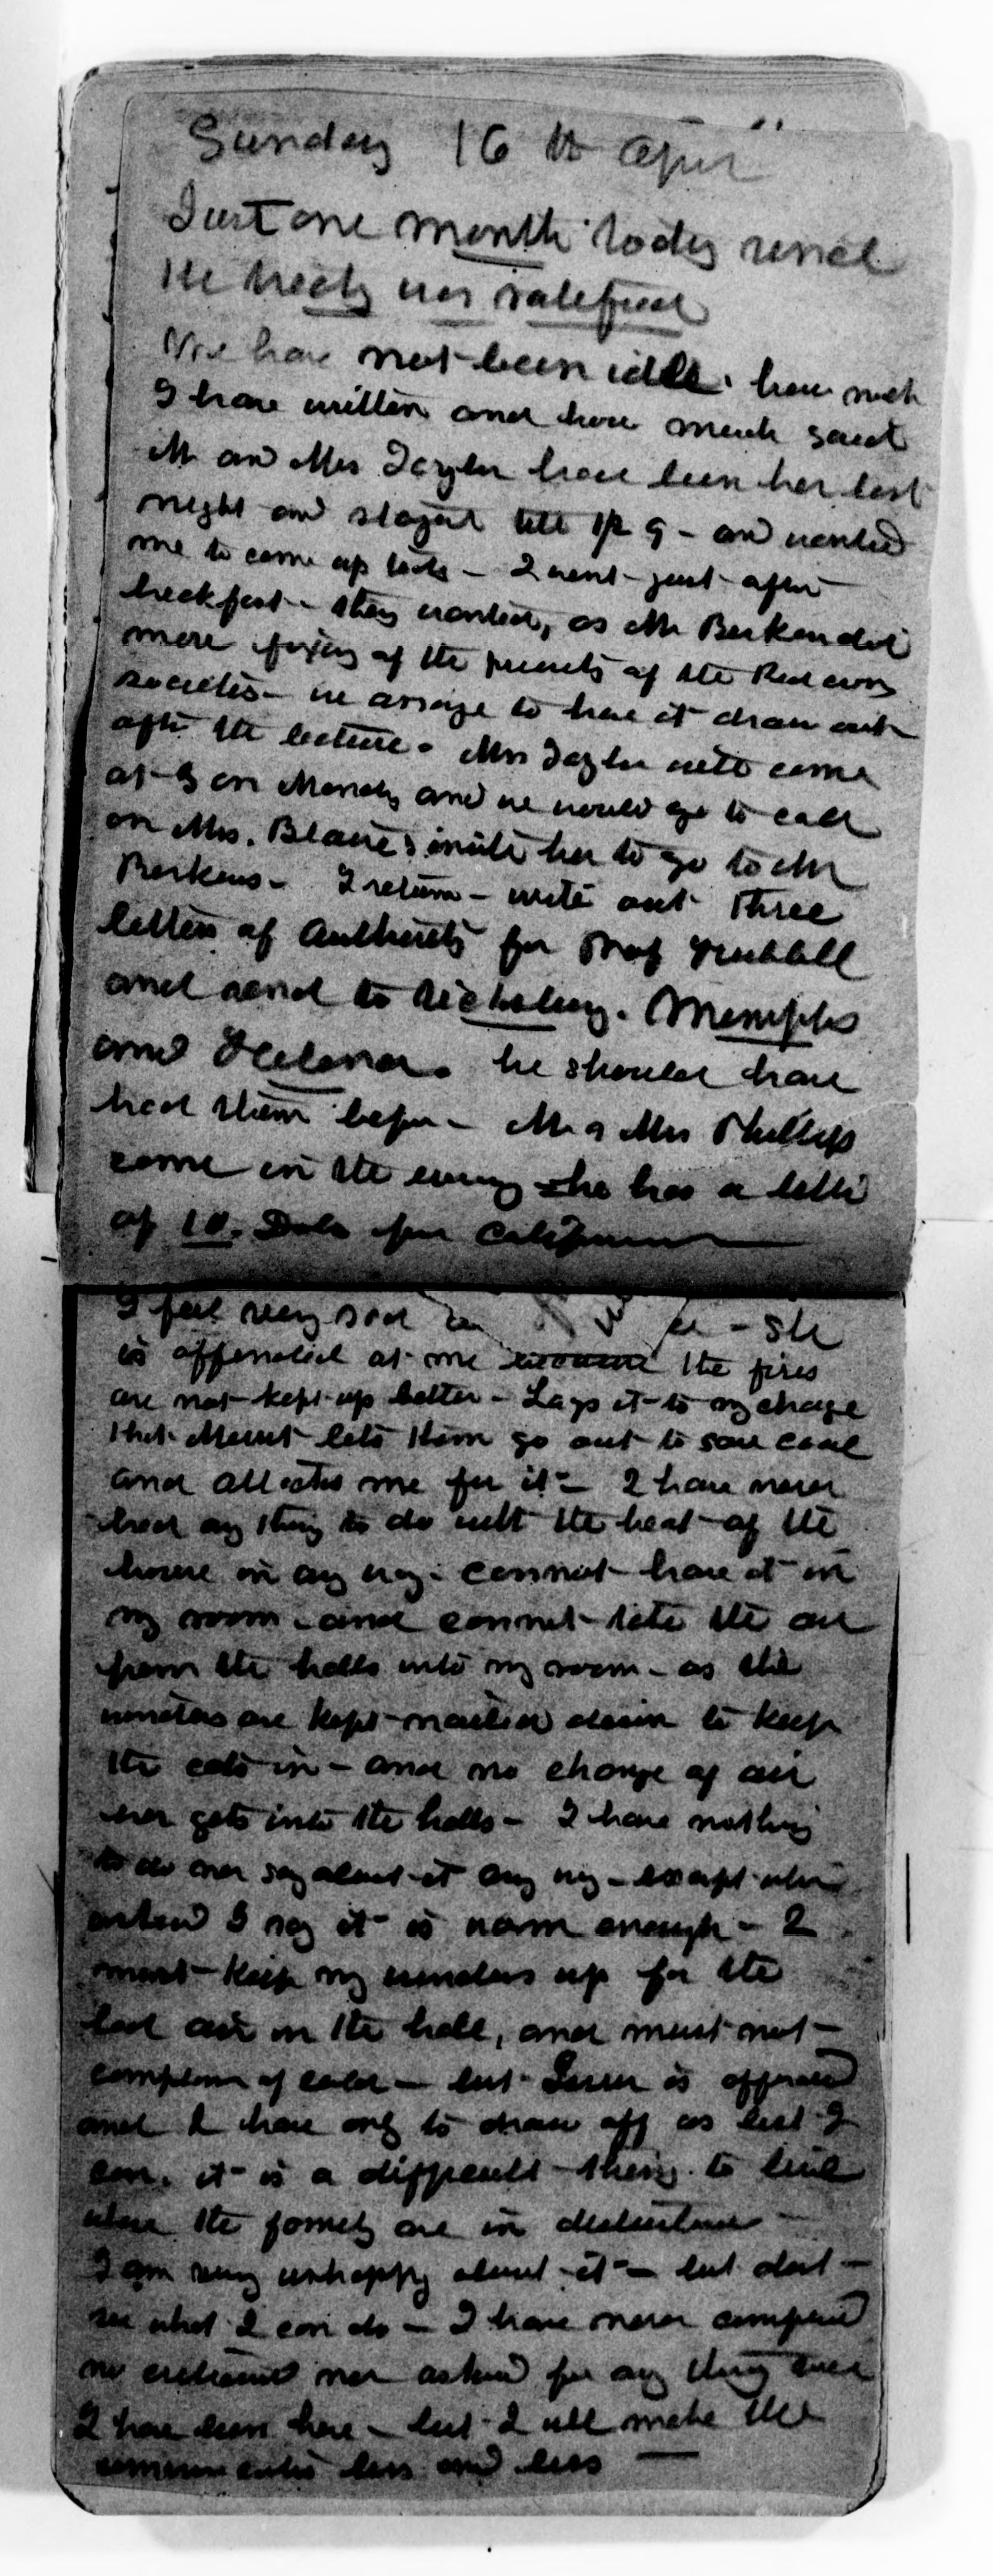 Sunday 16th April
Just one month today since
the treaty was ratified
We have not been idle. how much
I have written and how much said
Mr and Mrs Taylor have been her last
night and stayed till 1/2 9 - and wanted
me to come up today - I went just after
breakfast - they wanted, as Mr Barken did
more fixing of the precincts of the Red cross
societies - we arrange to have it drawn out
after the lecture. Mrs Taylor will come
at 3 on Monday and we would go to call
on Mrs. Blaine & invite her to go to Mr
Barkens - I return - write out three
letters of Authority for Prof Trubbell
and send to Vicksburg. Memphis
and Helena. he should have
had them before - Mr & Mrs Phillips
come in the evening she has a letter
of 10. Dols from California
I feel very sad - she
is offended at me because the fires
are not kept up better - Lays it to my charge
that Merrit lets them go out to save coal
and attacks me for it - I have never
had any thing to do with the heat of the
house in any way - cannot have it in
my room - and cannot take the air
from the halls into my room - as the
windows are kept nailed down to keep
the cats in - and no change of air
ever gets into the halls - I have nothing
to do nor say about it any way - except when
asked I say it is warm enough - I
must keep my windows up for the
bad air in the hall, and must not
complain of cold - but is offended
and I have only to draw off as best I
can. it is a difficult thing to live
where the family are in disturbance -
I am very unhappy about it - but dont
see what I can do - I have never complained
no criticised nor asked for any thing since
I have been here - but I will make the
communication less and less